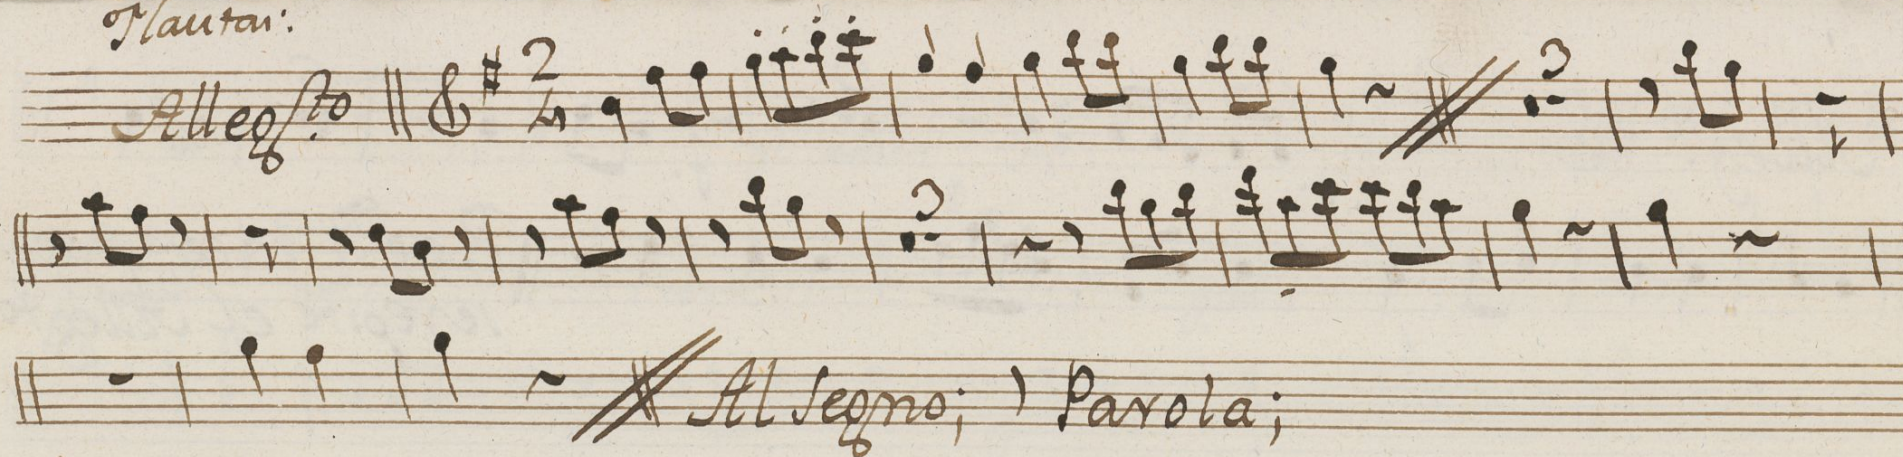 Flautai:
Allegsto 2 4 3
3
Al Segno; Parola;